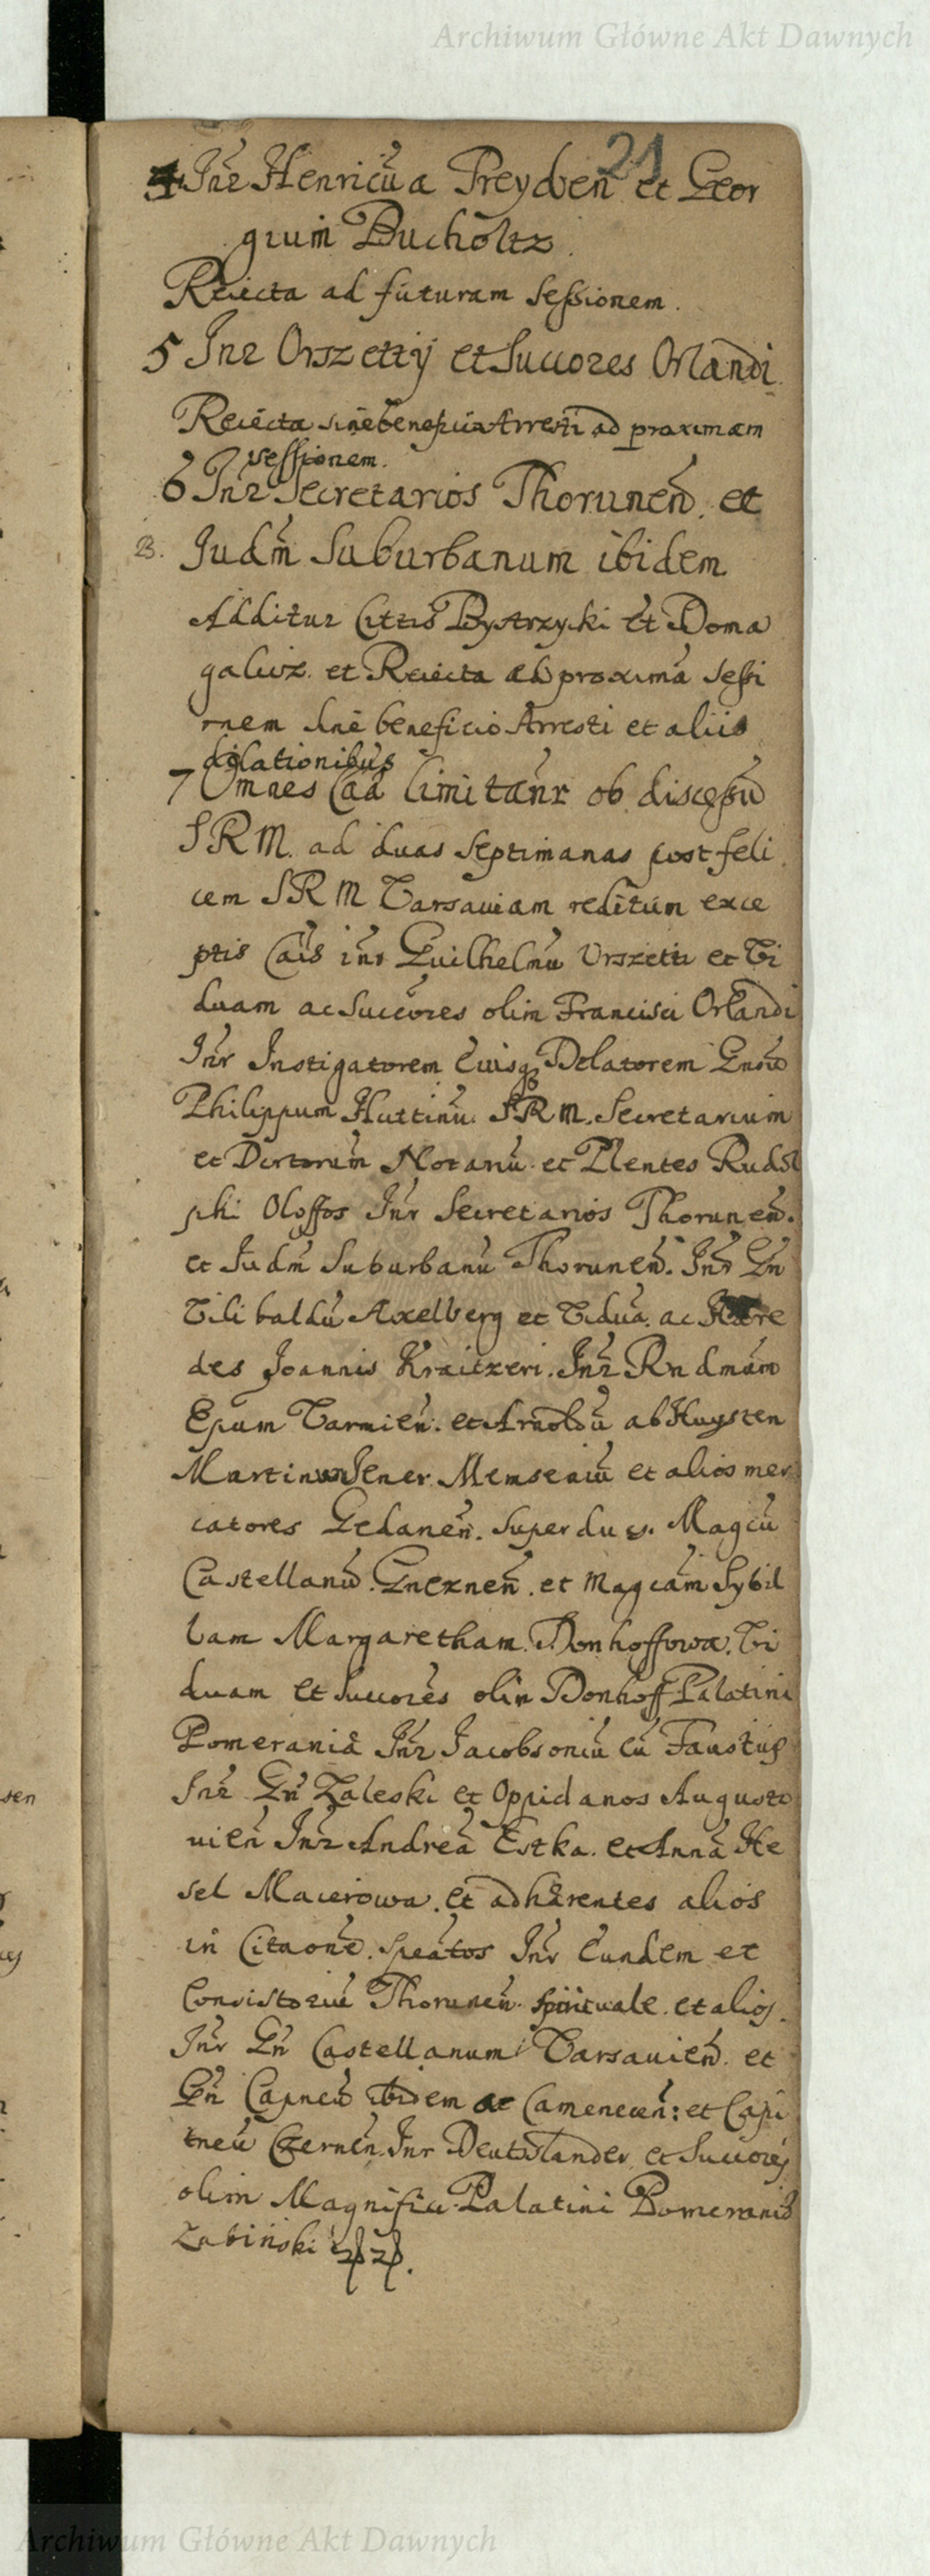 Archiwum Główne Akt Dawnych
21
4 Inr Henricũ a Preyden et Geor
gium Bucholtz.
Reiecta ad futuram Sessionem.
5 Inr Orszettij et Succores Orlandi
Reiecta sine beneficio Arresti ad proximam
sessionem.
6 Inr Secretarios Thorunen. et
B. Judm Suburbanum ibidem
Additur Cittis Bystrzycki et Doma
galicz. et Reiecta ad proximã Sessi
onem sine beneficio Arresti et aliis
dilationibus
7 Omnes Caã limitanr ob discessũ
SRM. ad duas Septimanas post feli
cem SRM Varsaviam reditum exce
ptis Cais inr Guilhelmũ Orszetti et Vi
duam ac Succores olim Francisci Orlandi
Inr Instigatorem Eiusq Delatorem Gnsũ
Philippum Huttinũ SRM. Secretarium
et Notariũ et Plentes Rudol
phi Oloffos Inr Secretarios Thorunen.
et Judm Suburbanũ Thorunen. Inr Gn
Vilibaldũ Axelberg et Viduã. ac Hære
des Joannis Kraitzeri. Inr Rndmum
Epum Varmien. et Arnoldũ ab Huysten
Martinum Jener et alios mer
catores Gedanen. Super du s. Magcũ
Castellanũ Gneznen. et Magcam Sybil
lam Margaretham Donhoffowa. Vi
duam et Succores olim Donhoff Palatini
Pomeraniæ Inr Jacobsoniũ cũ Faustus
Inr Gn Zaleski et Oppidanos Augusto
uien Inr Andreã Estka. et Annã He
sel Macerowa. et adhærentes alios
in Citaone. Speatos Inr Eundem et
Consistoriũ Thorunen Spirituale. et alios.
Inr Gn Castellanum Varsavien. et
Gn Capneũ ibidem ac Camenecen: et Capi
tneũ Czernen Inr Deutslander et Succores
olim Magnifici Palatini Pomeraniæ
Zabinski
sen
Archiwum Główne Akt Dawnych